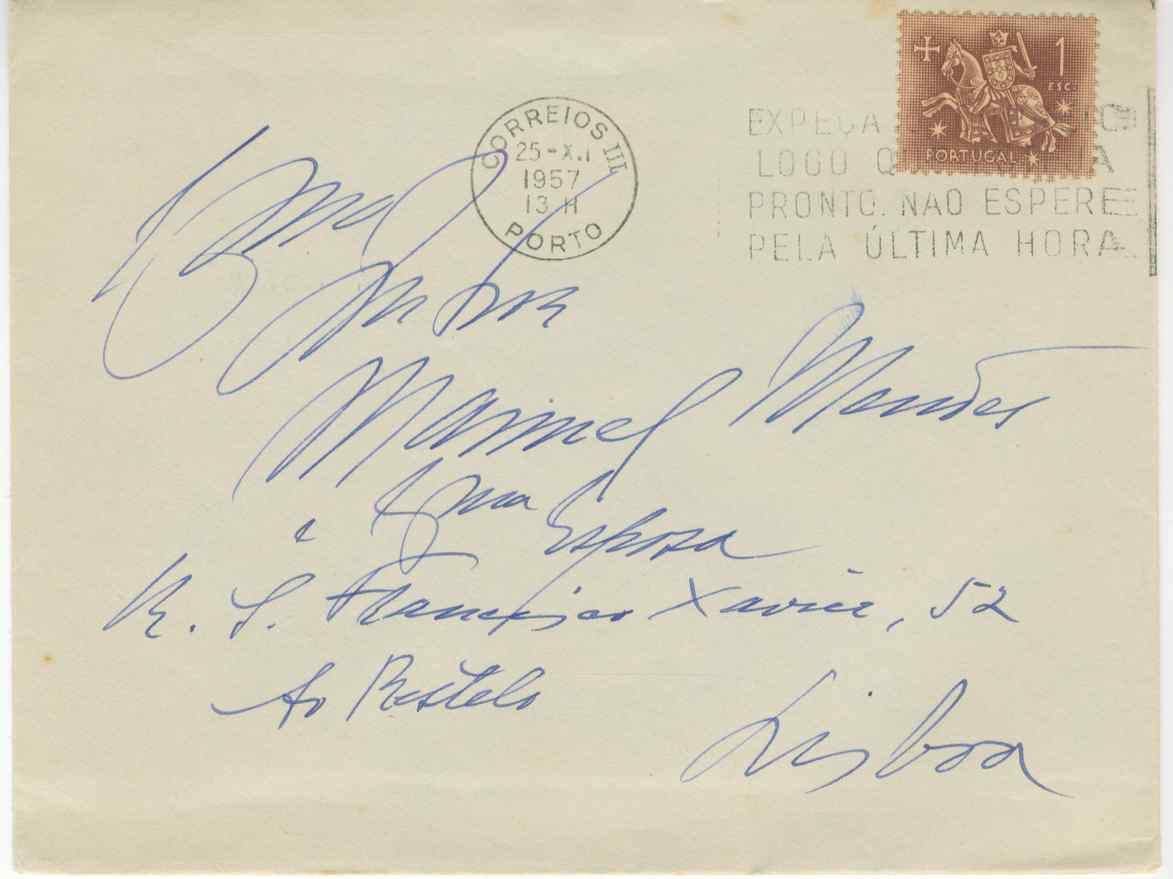 1
ESC.
PORTUGAL
CORREIOS III
1957
13 H
PORTO
EXPEÇA
LOGO
PRONTO. NAO ESPERE
PELA ÚLTIMA HORA
Manuel Mendes
e Sua Esposa
R. S. Francisco Xavier, 52
Ao Restelo
Lisboa